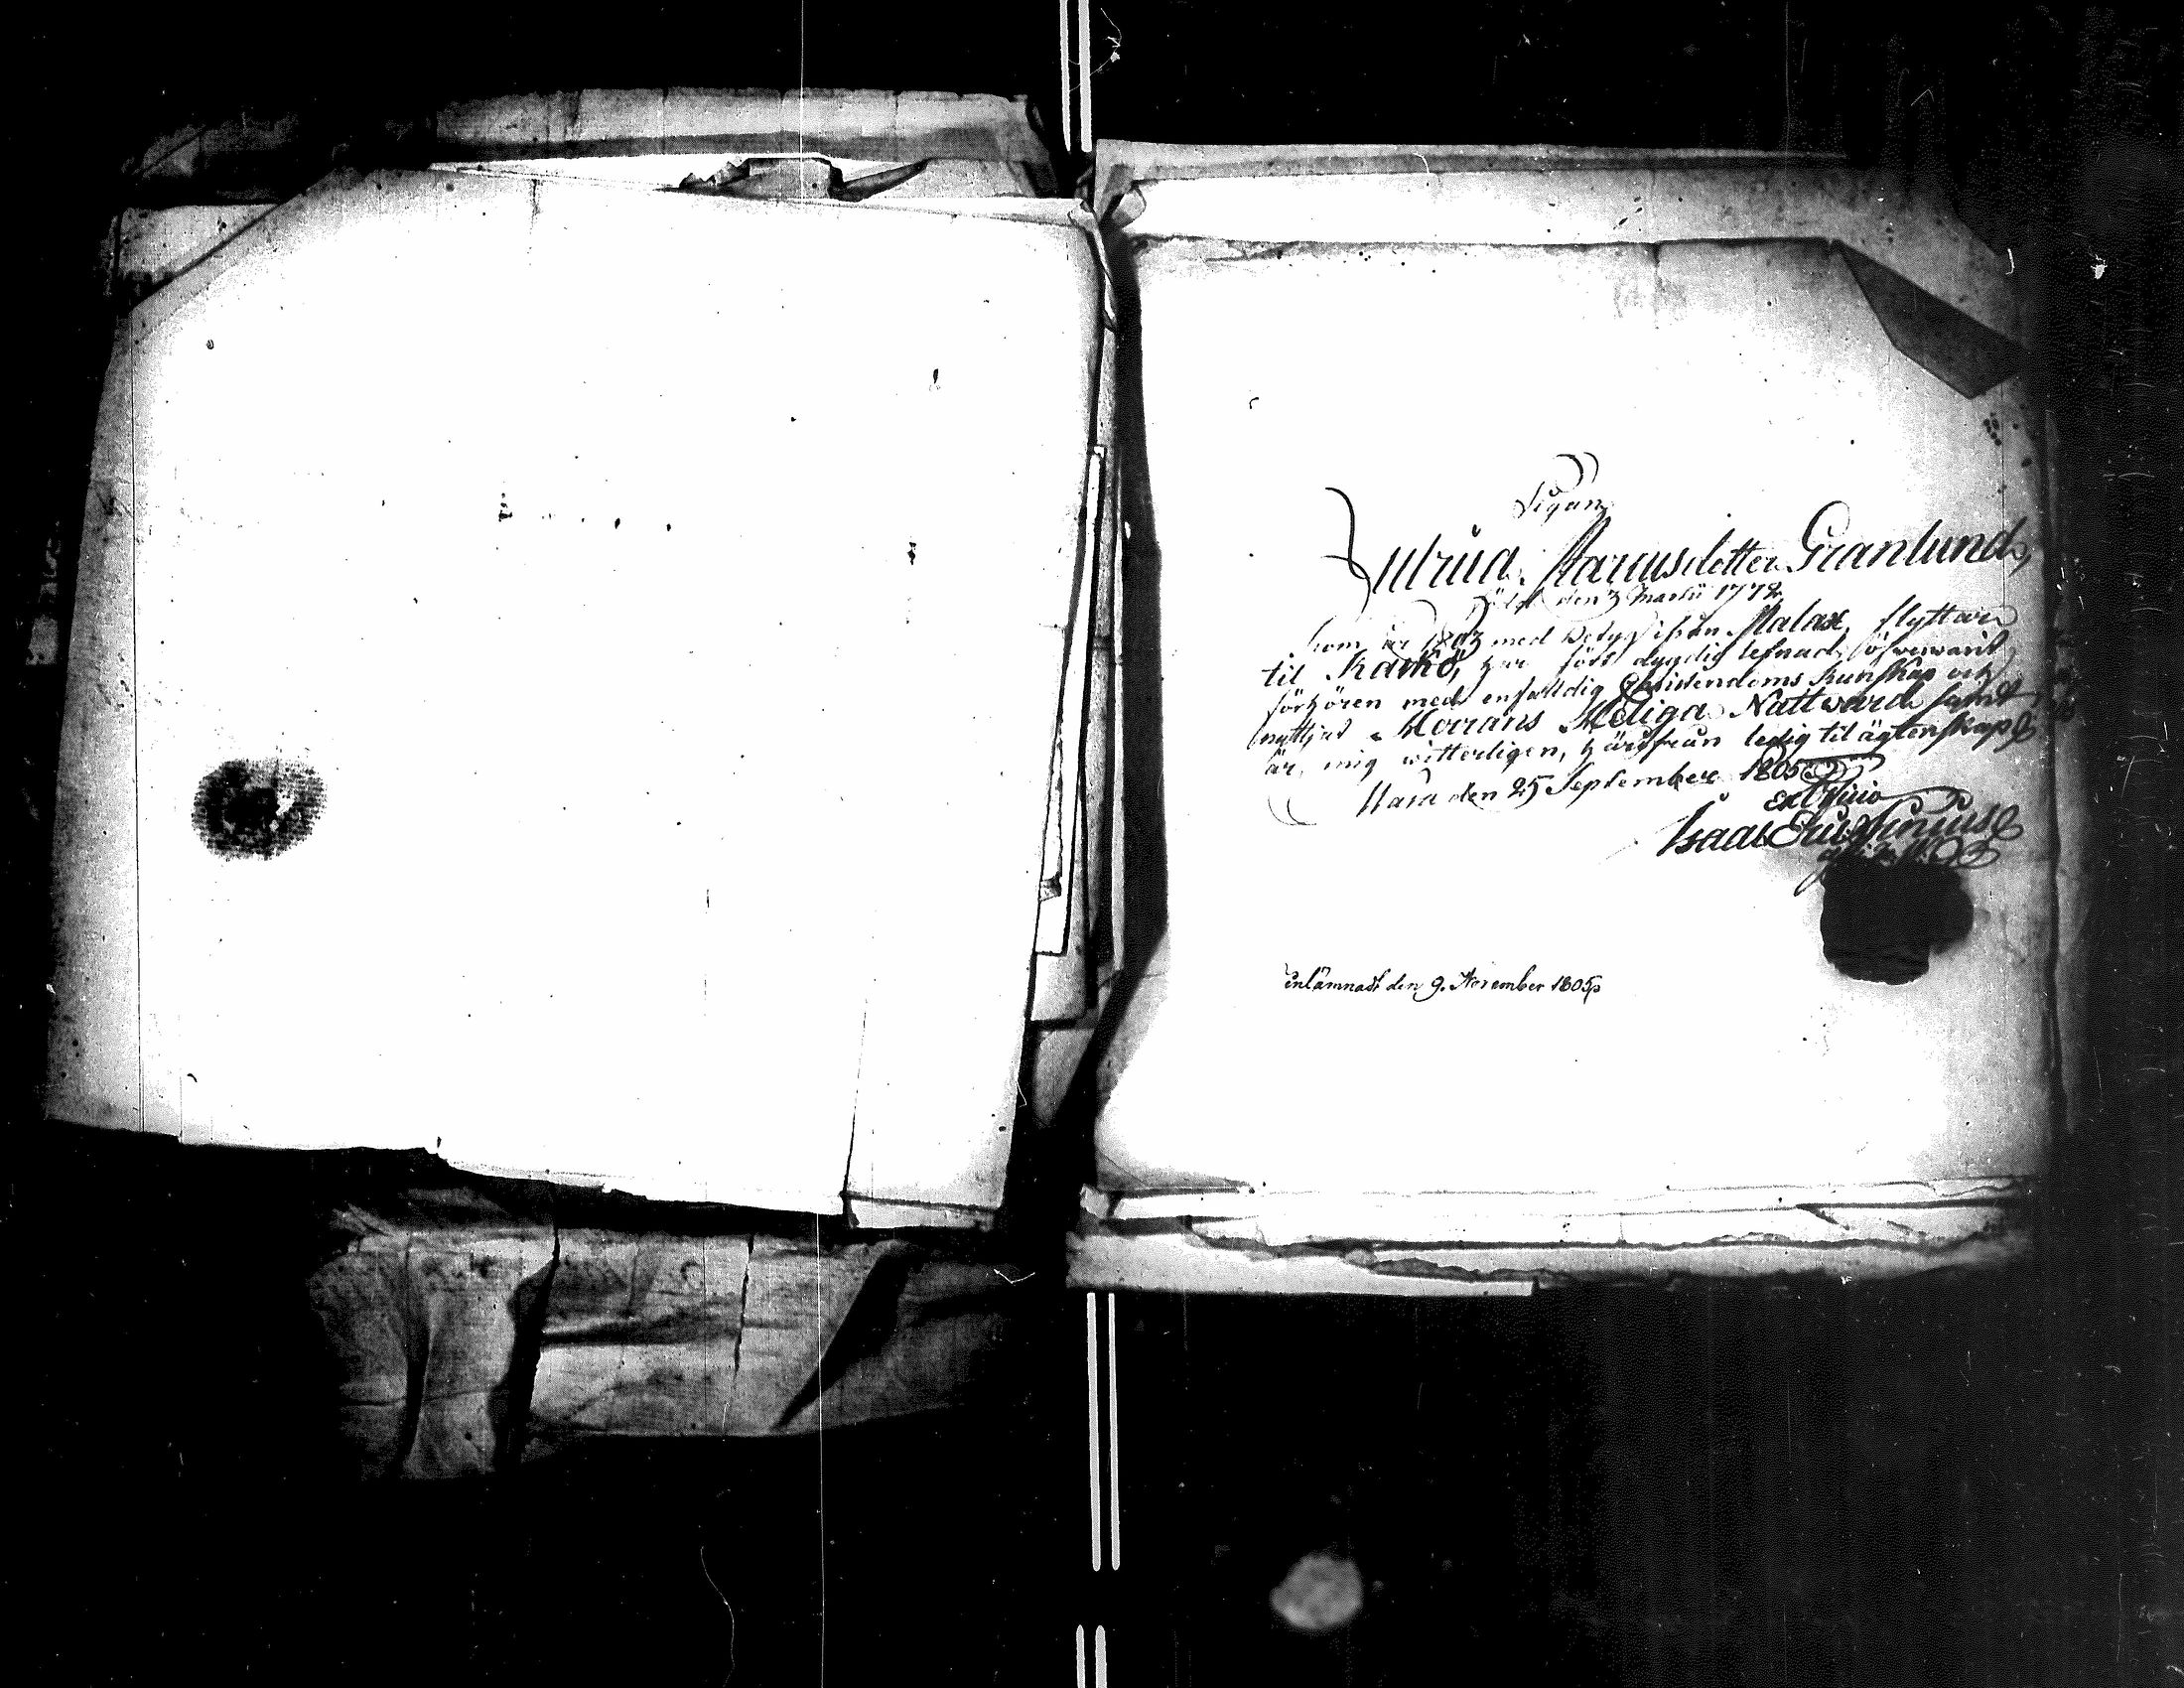 Pigan
Marcusdotter Granlund,
född den 3 Martii 1772
som år 1803 med Betyg ifrån Malax, flyttat
til har fört dygdig lefnad, öfwerwarit
förhören med enfaldig Christendoms kunskap och
nyttjat Herrans Heliga Nattward samt
är, mig witterligen, härifrån ledig til ägtenskap
Wasa den 25 September 1805
ex officio
Isaac
inlämnadt den 9. November 1805